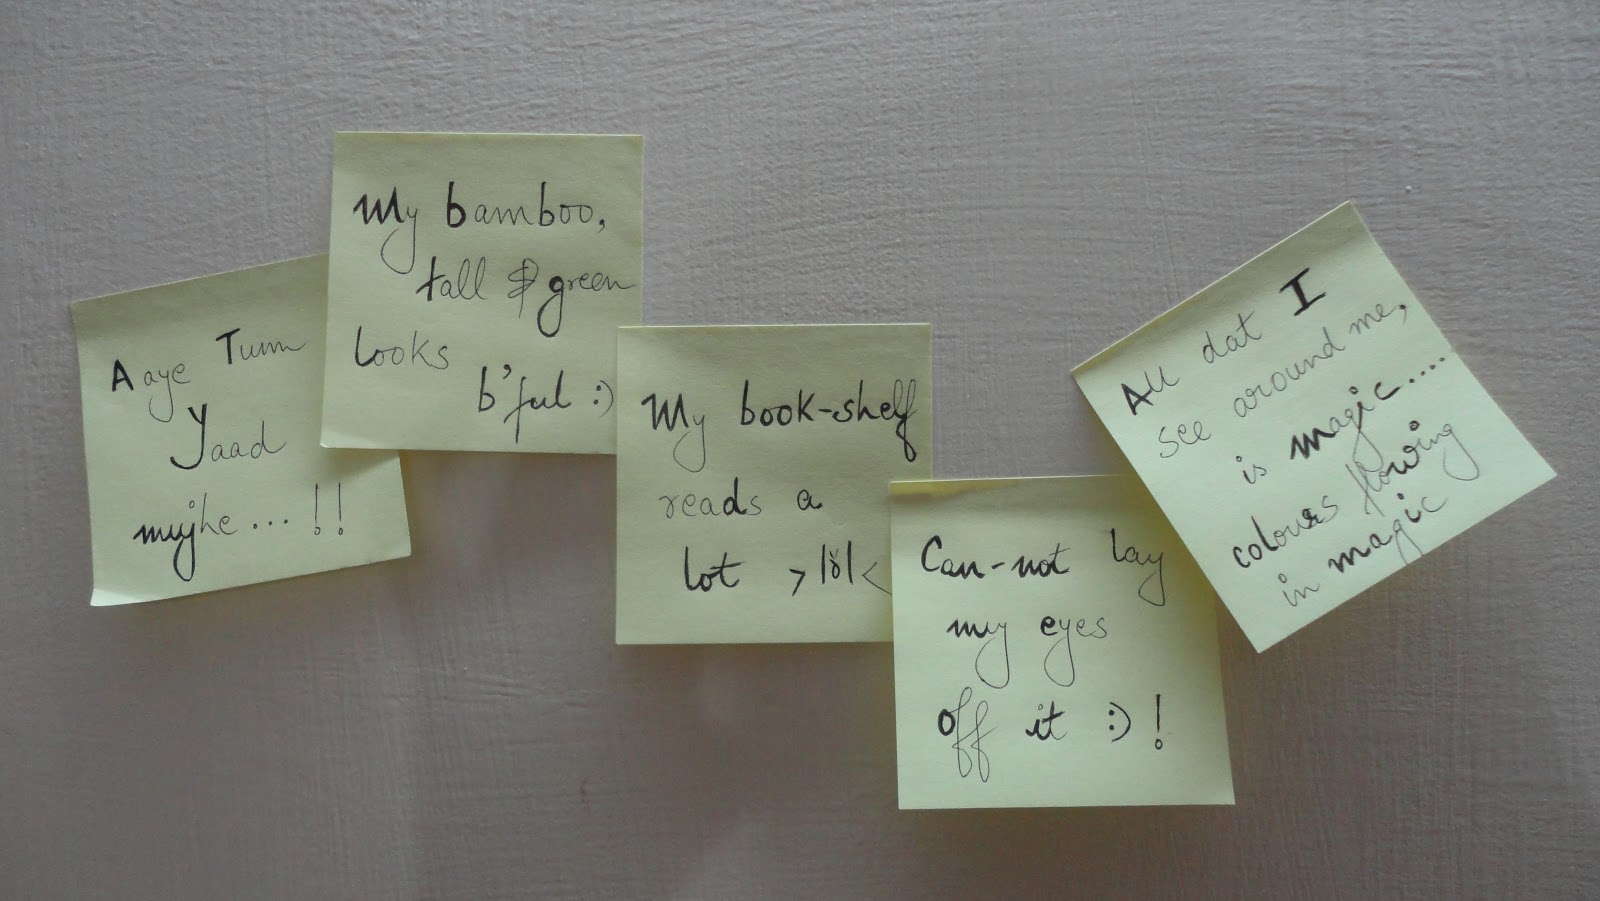 Aaye Tum
Yaad
mujhe... !!
My bamboo,
tall & green
looks
b'ful :)
My book-shelf
reads a
lot >lol<
Can-not lay
my eyes
off it :) !
All dat I
see around me,
is magic....
colours flowing
in magic